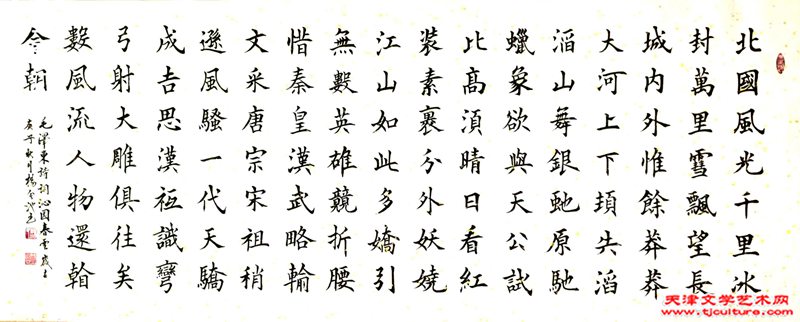 北國風光千里冰
封萬里雪飄望長
城內外惟餘莽莽
大河上下頓失滔
滔山舞銀虵原馳
蠟象欲與天公試
比高須晴日看紅
裝素裹分外妖嬈
江山如此多嬌引
無數英雄競折腰
惜秦皇漢武略輸
文采唐宗宋祖稍
遜風騷一代天驕
成吉思漢祗識彎
弓射大雕俱往矣
數風流人物還看
今朝
毛澤東詩詞沁園春雪歲在
庚午秋月楊
天津文学艺术网
www.tjculture.com